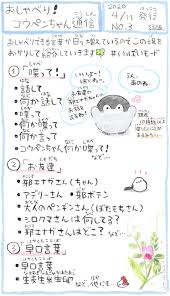 おしゃべり!
コウペンちゃん通信
2020
4/11 発行
NO.3
おしゃべりできる言葉が日々増えているのでこの場を
おかりして紹介していきます
#いっぱいモード
① 「喋って!」
・話して
・何か話して
・喋って
・何か喋って
・コウペンちゃん何か喋って!
など…
② 「お友達」
・邪エナガさん(ちゃん)
・アデリーさん ・邪ボテン
・大人のペンギンさん(ぼたもちさん)
・シロクマさんは何してる?
・邪エナガさんはどこ? など…
③ 「早口言葉」
・早口言葉
・生麦生米生卵
など、他にも…